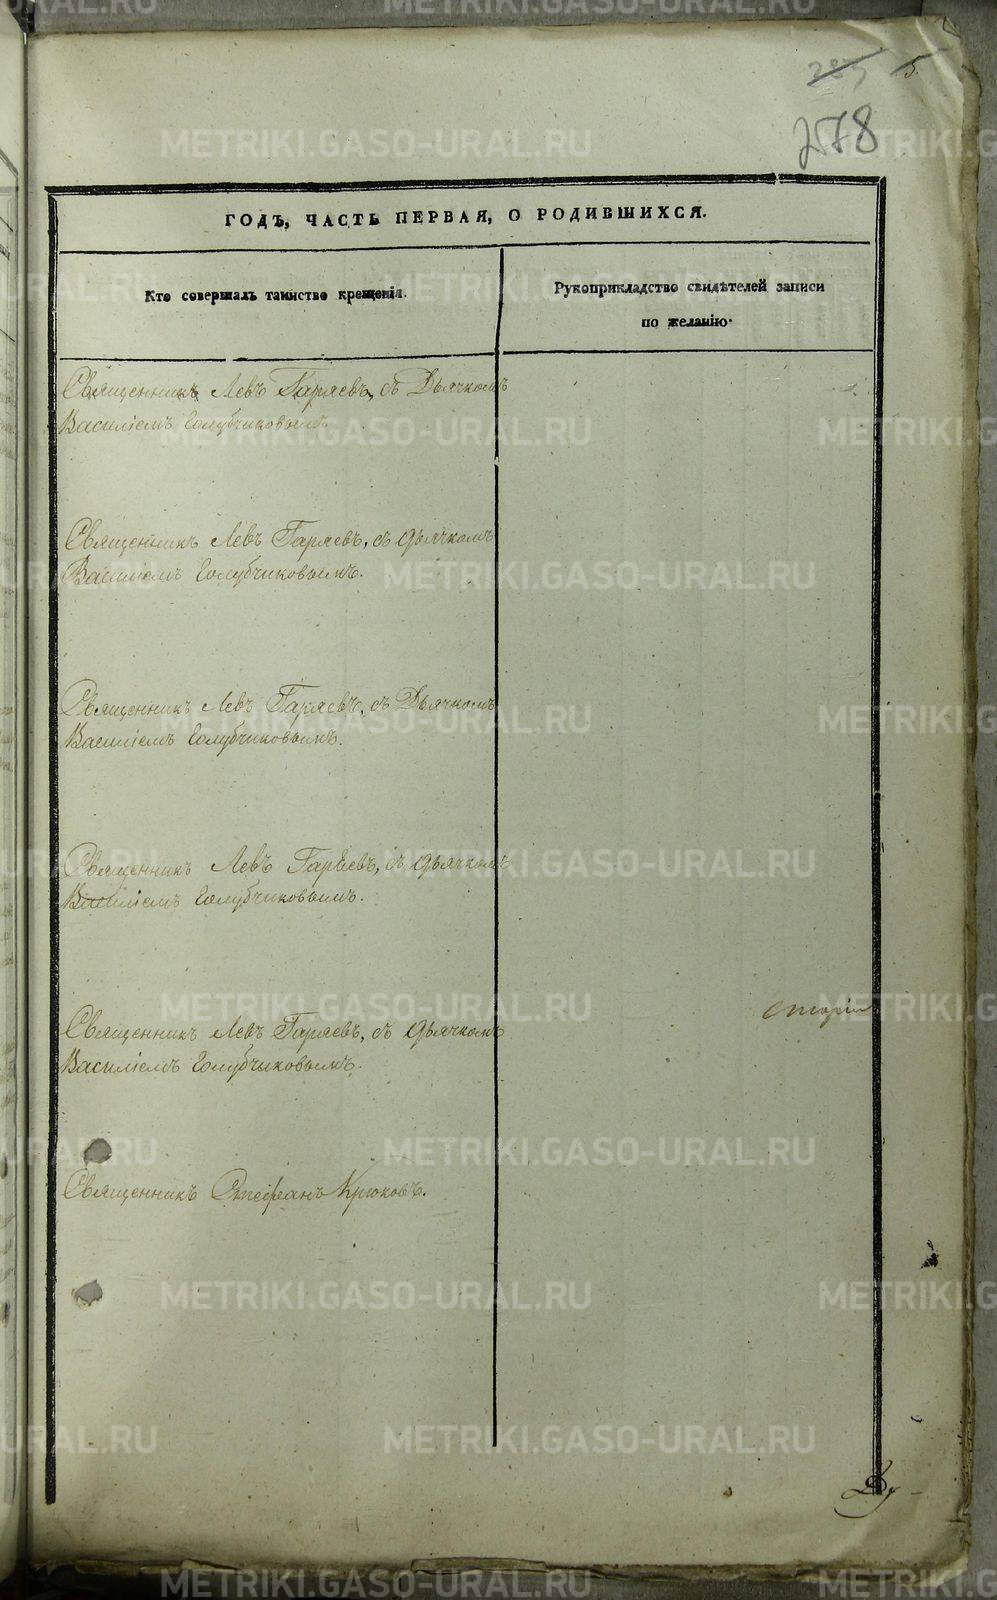 283 5.
278
ГОДЪ, ЧАСТЬ ПЕРВАЯ, О РОДИВШИХСЯ.
Кто совершалъ таинство крещенія.
Рукоприкладство свидѣтелей записи
по желанію.
Священникъ Левъ Гаряевъ, съ Дьячкомъ
Василіемъ Голубчиковымъ.
Священникъ Левъ Гаряевъ, съ дьячкомъ
Василіемъ Голубчиковымъ.
Священникъ Левъ Гаряевъ, съ Дьячкомъ
Василіемъ Голубчиковымъ.
Священникъ Левъ Гаряевъ, съ дьячкомъ
Василіемъ Голубчиковымъ.
Священникъ Левъ Гаряевъ, съ дьячкомъ
Василіемъ Голубчиковымъ.
Священникъ Стефанъ Крюковъ.
METRIKI.GASO-URAL.RU